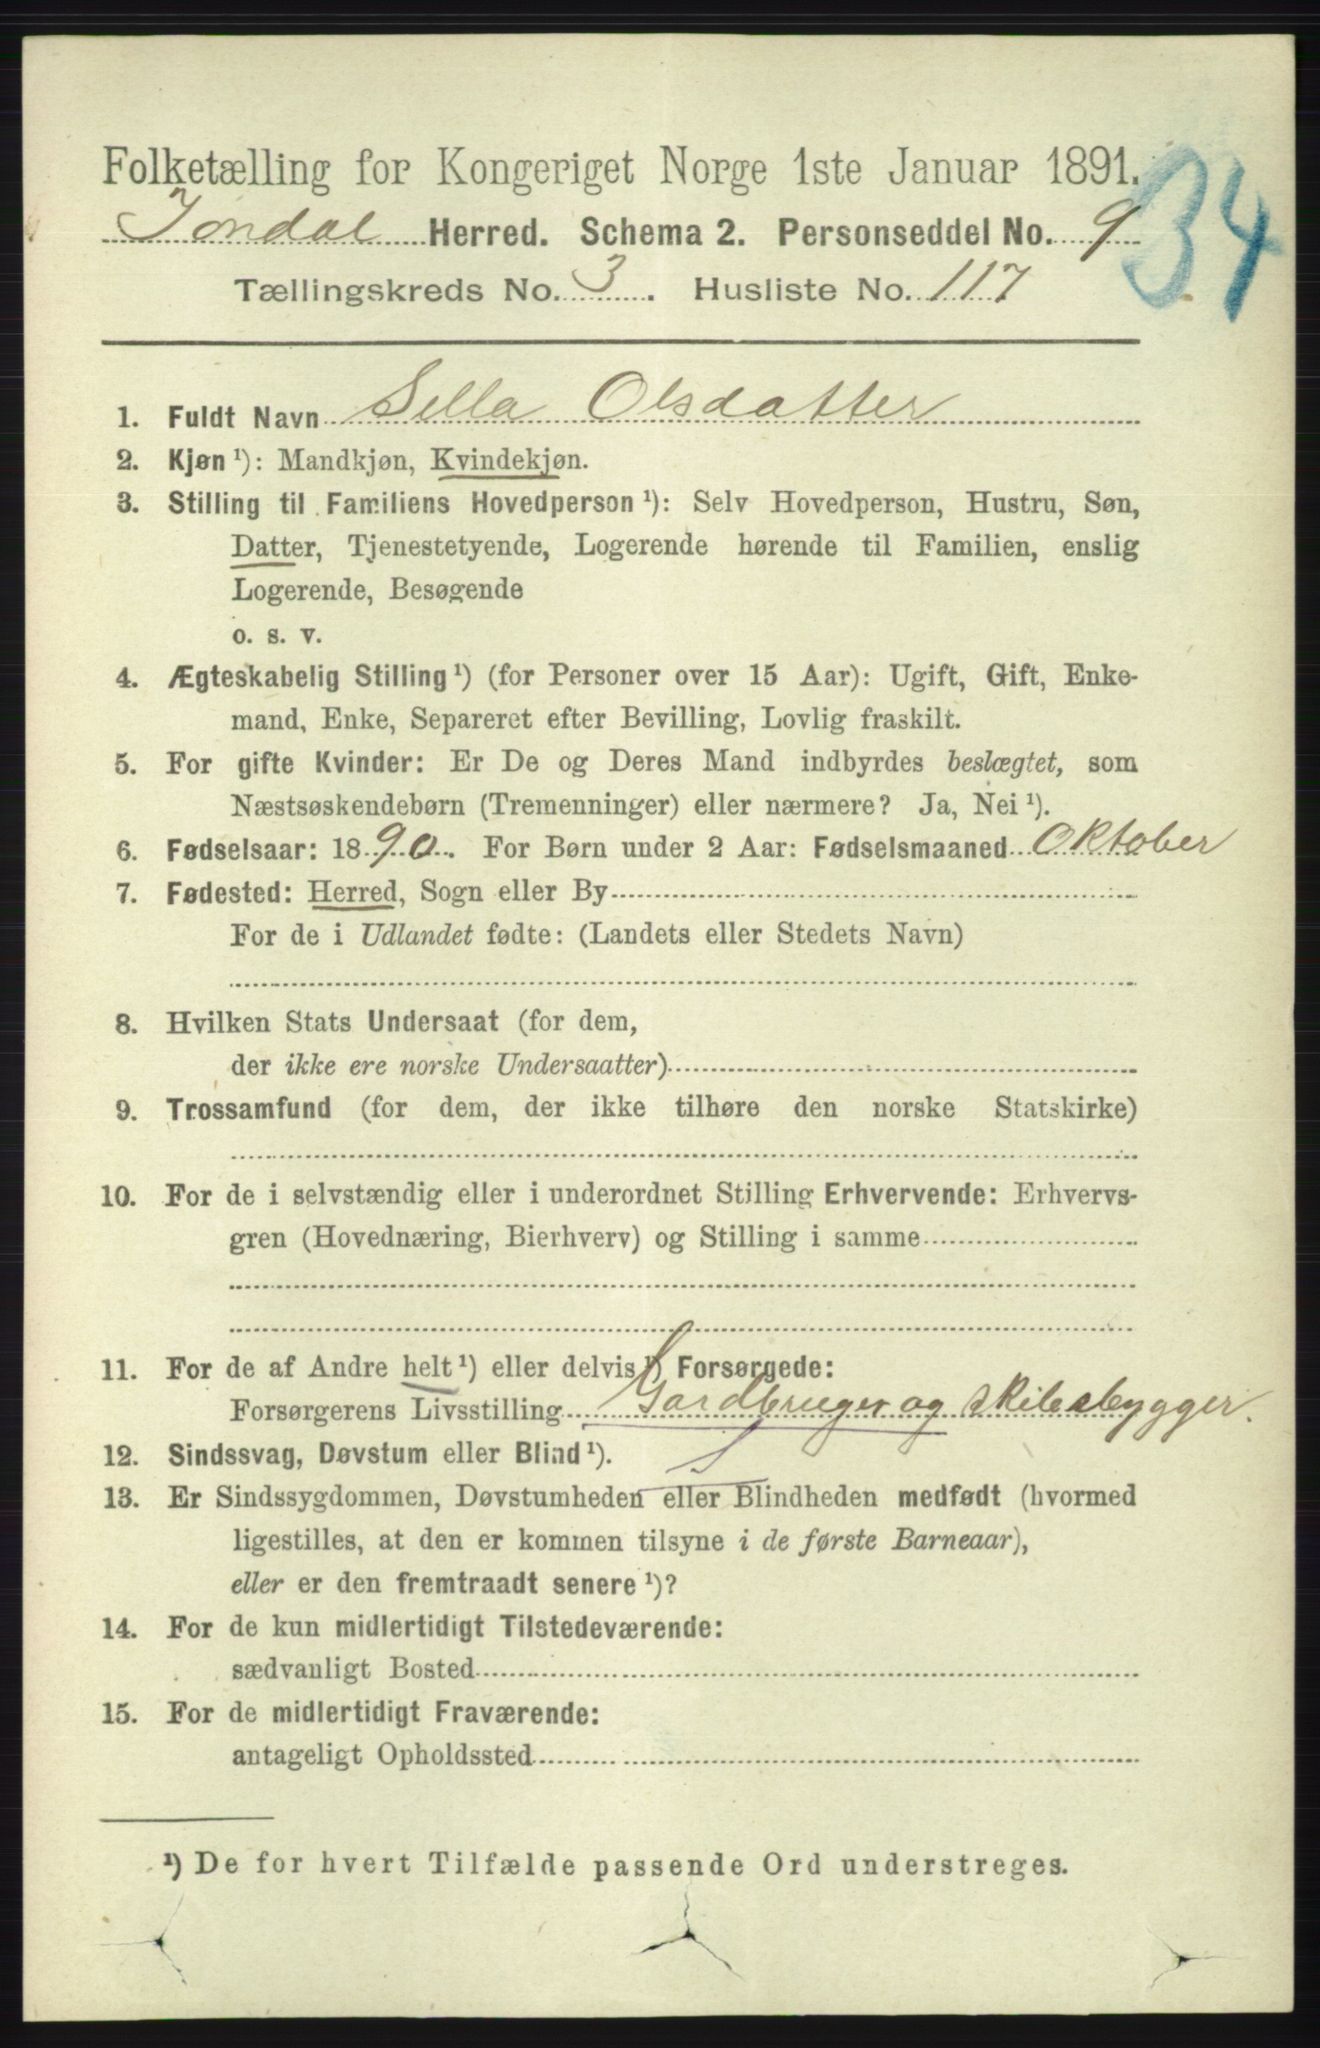 Folketælling for Kongeriget Norge 1ste Januar 1891.
34
Jondal Herred. Schema 2. Personseddel No. 9
Tællingskreds No. 3. Husliste No. 117
1. Fuldt Navn Sella Olsdatter
2. Kjøn ¹): Mandkjøn, Kvindekjøn.
3. Stilling til Familiens Hovedperson ¹): Selv Hovedperson, Hustru, Søn,
Datter, Tjenestetyende, Logerende hørende til Familien, enslig
Logerende, Besøgende
o. s. v.
4. Ægteskabelig Stilling ¹) (for Personer over 15 Aar): Ugift, Gift, Enke-
mand, Enke, Separeret efter Bevilling, Lovlig fraskilt.
5. For gifte Kvinder: Er De og Deres Mand indbyrdes beslægtet, som
Næstsøskendebørn (Tremenninger) eller nærmere? Ja, Nei ¹).
6. Fødselsaar: 1890. For Børn under 2 Aar: Fødselsmaaned Oktober
7. Fødested: Herred, Sogn eller By
For de i Udlandet fødte: (Landets eller Stedets Navn)
8. Hvilken Stats Undersaat (for dem,
der ikke ere norske Undersaatter)
9. Trossamfund (for dem, der ikke tilhøre den norske Statskirke)
10. For de i selvstændig eller i underordnet Stilling Erhvervende: Erhvervs-
gren (Hovednæring, Bierhverv) og Stilling i samme
11. For de af Andre helt ¹) eller delvis ¹) Forsørgede:
Forsørgerens Livsstilling Gardbruger og skibsbygger.
12. Sindssvag, Døvstum eller Blind ¹).
13. Er Sindssygdommen, Døvstumheden eller Blindheden medfødt (hvormed
ligestilles, at den er kommen tilsyne i de første Barneaar),
eller er den fremtraadt senere ¹)?
14. For de kun midlertidigt Tilstedeværende:
sædvanligt Bosted
15. For de midlertidigt Fraværende:
antageligt Opholdssted
¹) De for hvert Tilfælde passende Ord understreges.